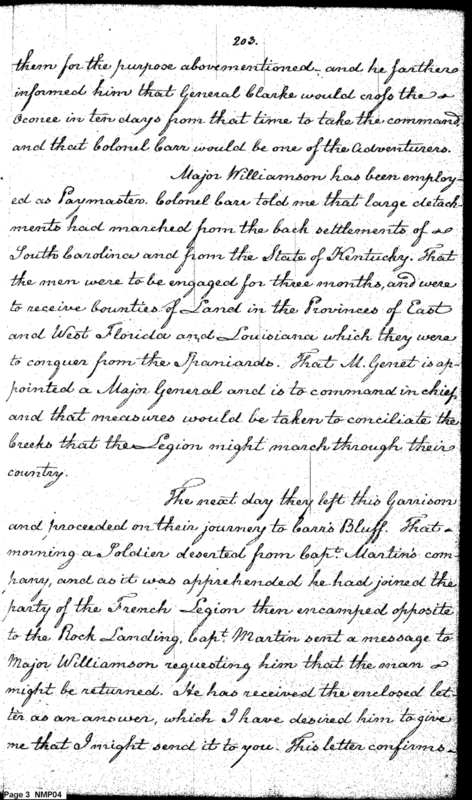 203.
them for the purpose abovementioned. and he farther
informed him that General Clarke would cross the
Oconee in ten days from that time to take the command,
and that Colonel Carr would be one of the Adventurers.
Major Williamson has been employ-
ed as Paymaster. Colonel Carr told me that large detach-
ments had marched from the back settlements of
South Carolina and from the State of Kentucky. That
the men were to be engaged for three months, and were
to receive bounties of Land in the Provinces of East
and West Florida and Louisiana which they were
to conquer from the Spaniards. That M. Genet is ap-
pointed a Major General and is to command in chief,
and that measures would be taken to conciliate the
Creeks that the Legion might march through their
country.
The next day they left this Garrison
and proceeded on their journey to Carr's Bluff. That
morning a Soldier deserted from Capt. Martin's com-
pany, and as it was apprehended he had joined the
party of the French Legion then encamped opposite
to the Rock Landing, Capt. Martin sent a message to
Major Williamson requesting him that the man
might be returned. He has received the enclosed let-
ter as an answer, which I have desired him to give
me that I might send it to you. This letter confirms
Page 3 NMP04